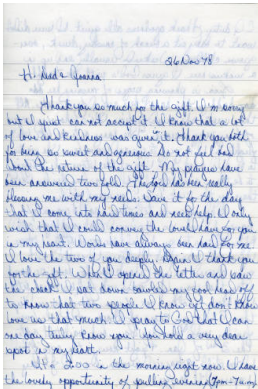 26 Nov 78
Hi Dad & Joanna
Thank you so much for the gift. I'm sorry
but I just can not accept it. I know that a lot
of love and kindness was given it. Thank you both
for being so sweet and generous. Do not feel bad
about the return of the gift. My prayers have
been answered two fold. The Lord has been really
blessing me with my needs. Save it for the day
that I come into hard times and need help. I only
wish that I could convey the love I have for you
in my heart. Words have always been hard for me
I love the two of you deeply. Again I thank you
for the gift. When I opened the letter and saw
the check I sat down sobbing my poor head off
to know that two people I know yet don't know
love us that much. I pray to God that I can
one day truly know you. You hold a very dear
spot in my heart.
It's 2:00 in the morning right now. I have
the lovely opportunity of pulling (7pm-7am)